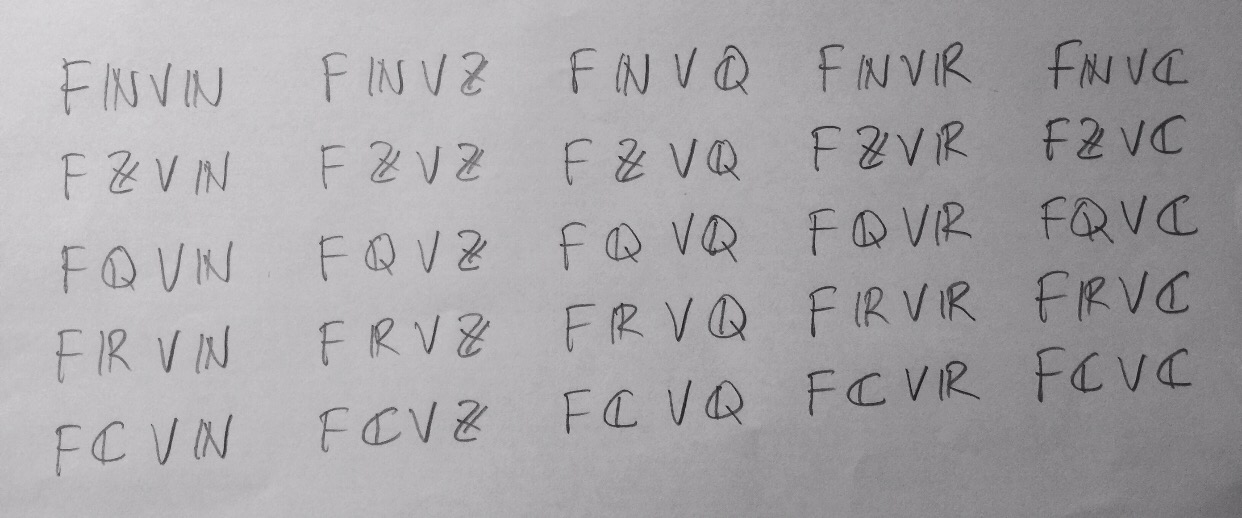 FℕVℕ FℕVℤ FℕVℚ FℕVℝ FℕVℂ
FℤVℕ FℤVℤ FℤVℚ FℤVℝ FℤVℂ
FℚVℕ FℚVℤ FℚVℚ FℚVℝ FℚVℂ
FℝVℕ FℝVℤ FℝVℚ FℝVℝ FℝVℂ
FℂVℕ FℂVℤ FℂVℚ FℂVℝ FℂVℂ